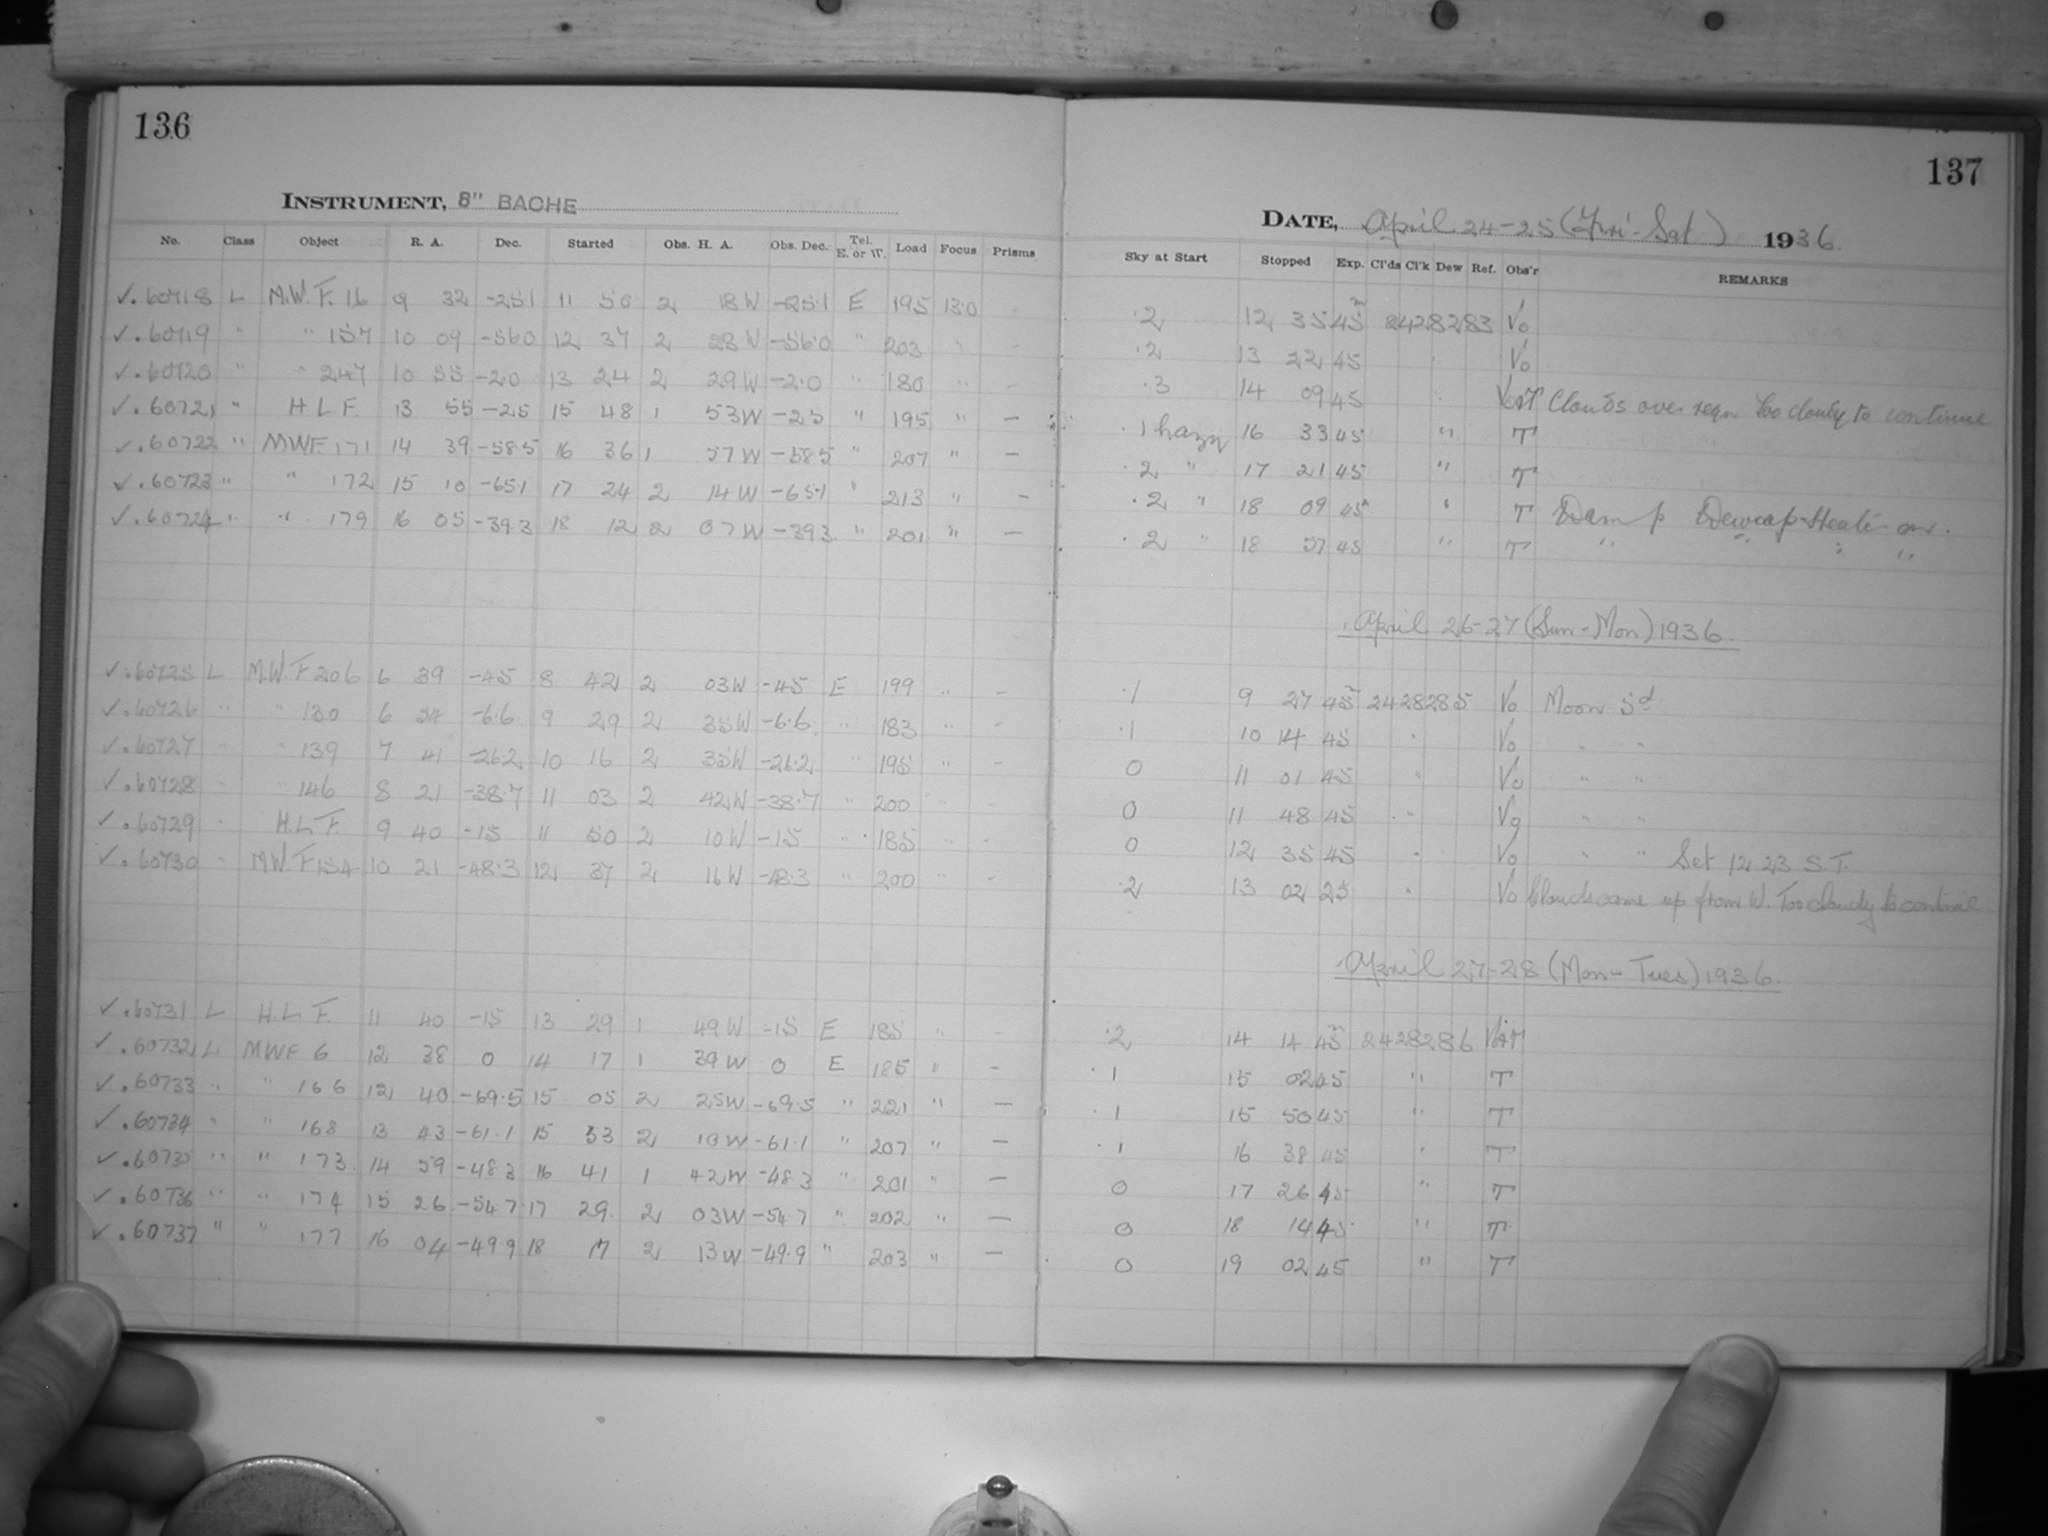 136
INSTRUMENT, 8" BACHE
No. Class Object R. A. Dec. Started Obs. H. A. Obs. Dec. Tel. E. or W. Load Focus Prisms
✓.60718 L M.W.F. 16 9 32 -25.1 11 50 2 18 W -25.1 E 195 13.0
✓.60719 " " 157 10 09 -56.0 12 37 2 28 W -56.0 " 203 " -
✓.60720 " " 247 10 55 -2.0 13 24 2 29 W -2.0 " 180 " -
✓.60721 " H L F. 13 55 -25 15 48 1 53 W -25 " 195 " -
✓.60722 " MWF 171 14 39 -58.5 16 36 1 57 W -58.5 " 207 " -
✓.60723 " " 172 15 10 -65.1 17 24 2 14 W -65.1 " 213 " -
✓.60724 " " 179 16 05 -39.3 18 12 2 07 W -39.3 " 201 " -
✓.60725 L M.W.F 206 6 39 -45 8 42 2 03 W -45 E 199 " -
✓.60726 " " 130 6 54 -6.6 9 29 2 35 W -6.6 " 183 " -
✓.60727 " " 139 7 41 -26.2 10 16 2 35 W -26.2 " 195 " -
✓.60728 " " 146 8 21 -38.7 11 03 2 42 W -38.7 " 200 " -
✓.60729 " H.L.F. 9 40 -15 11 50 2 10 W -15 " 185 " -
✓.60730 " M.W.F 154 10 21 -48.3 12 37 2 16 W -48.3 " 200 " -
✓.60731 L H.L.F. 11 40 -15 13 29 1 49 W -15 E 185 " -
✓.60732 L MWF 6 12 38 0 14 17 1 39 W 0 E 185 " -
✓.60733 " " 166 12 40 -69.5 15 05 2 25 W -69.5 " 221 " -
✓.60734 " " 168 13 43 -61.1 15 53 2 10 W -61.1 " 207 " -
✓.60735 " " 173 14 59 -48.3 16 41 1 42 W -48.3 " 201 " -
✓.60736 " " 174 15 26 -54.7 17 29 2 03 W -54.7 " 202 " -
✓.60737 " " 177 16 04 -49.9 18 17 2 13 W -49.9 " 203 " -
137
DATE, April 24-25 (Fri-Sat) 1936.
Sky at Start Stopped Exp. Cl'ds Cl'k Dew Ref. Obs'r REMARKS
.2 12 35 45 m 2428283 Vo
.2 13 22 45 " Vo
.3 14 09 45 Clouds over regn too cloudy to continue
.1 hazy 16 33 45 " T
.2 " 17 21 45 " T
.2 " 18 09 45 " T Damp Dewcap-Heater on.
.2 " 18 57 45 " T " " " "
April 26-27 (Sun-Mon) 1936.
.1 9 27 45 m 2428285 Vo Moon 5d
.1 10 14 45 " Vo " "
0 11 01 45 " Vo " "
0 11 48 45 " Vo " "
0 12 35 45 " Vo " " Set 12 23 S.T.
.2 13 02 25 " Vo Clouds came up from W. Too cloudy to continue
April 27-28 (Mon-Tues) 1936.
.2 14 14 45 m 2428286
.1 15 02 45 " T
.1 15 50 45 " T
.1 16 38 45 " T
0 17 26 45 " T
0 18 14 45 " T
0 19 02 45 " T